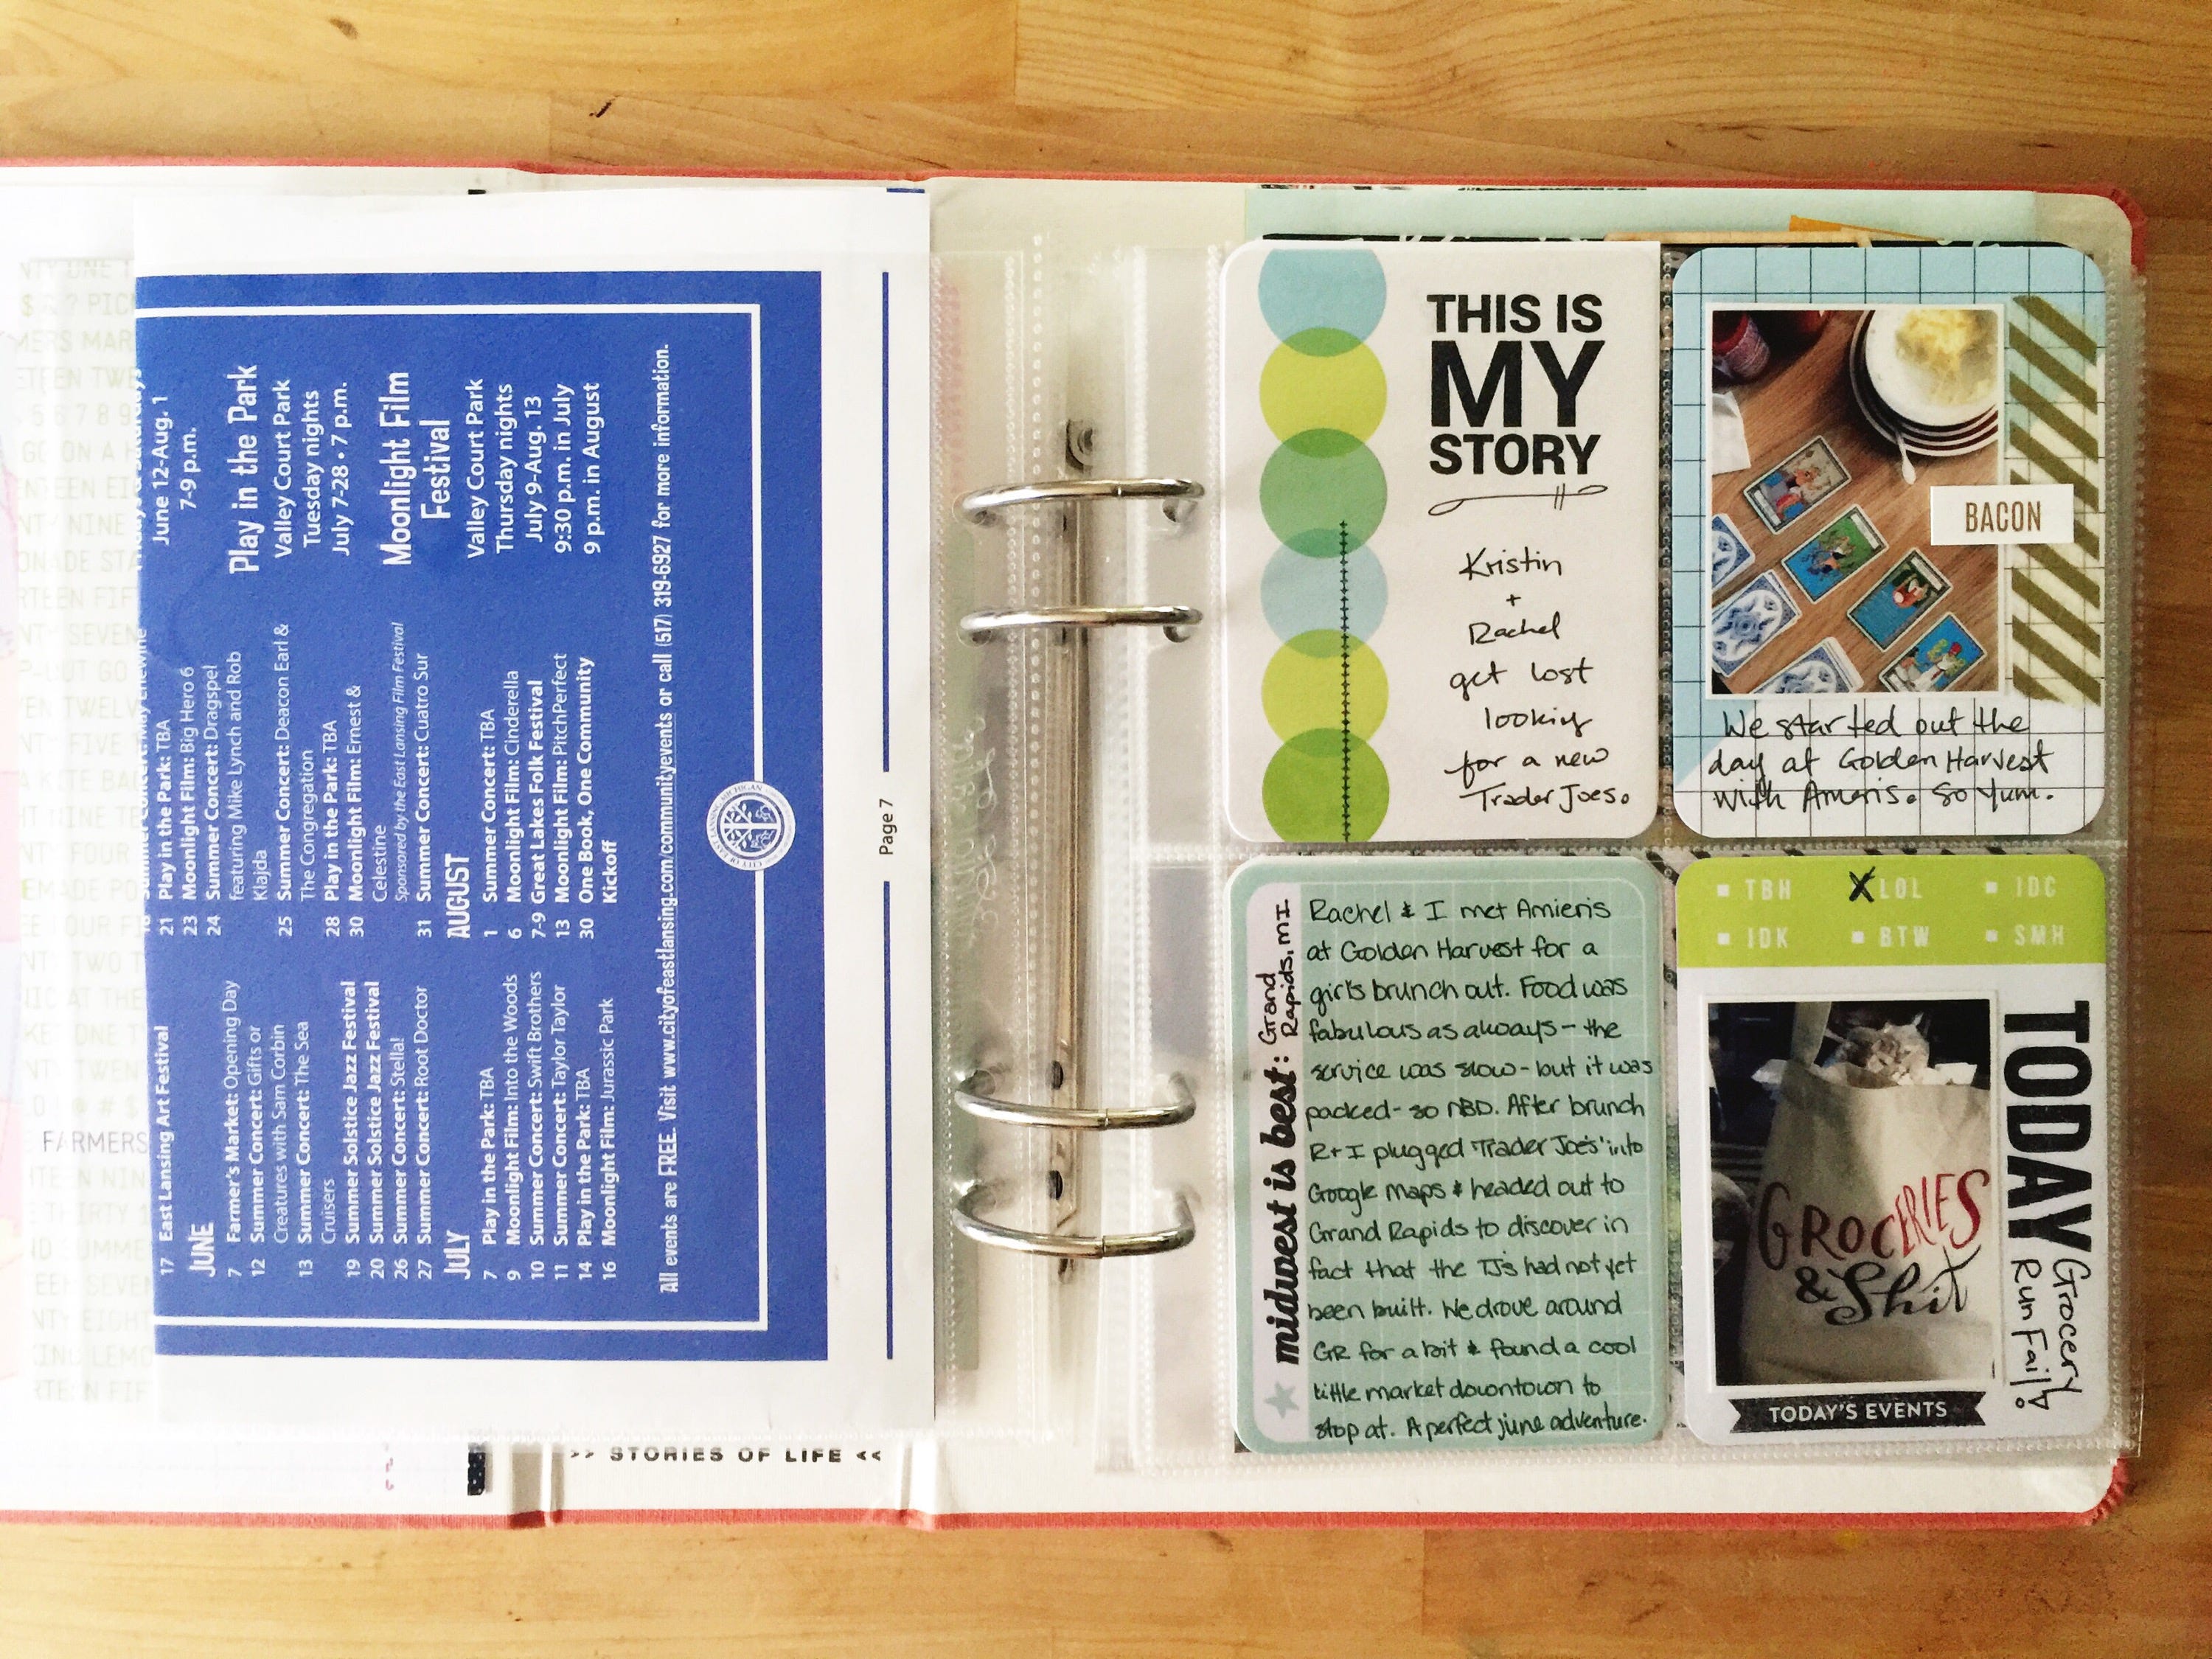 17 East Lansing Art Festival
JUNE
7 Farmer's Market: Opening Day
12 Summer Concert: Gifts or
Creatures with Sam Corbin
13 Summer Concert: The Sea
Cruisers
19 Summer Solstice Jazz Festival
20 Summer Solstice Jazz Festival
26 Summer Concert: Stella!
27 Summer Concert: Root Doctor
JULY
7 Play in the Park: TBA
9 Moonlight Film: Into the Woods
10 Summer Concert: Swift Brothers
11 Summer Concert: Taylor Taylor
14 Play in the Park: TBA
16 Moonlight Film: Jurassic Park
21 Play in the Park: TBA
23 Moonlight Film: Big Hero 6
24 Summer Concert: Dragspel
featuring Mike Lynch and Rob
Klajda
25 Summer Concert: Deacon Earl &
The Congregation
28 Play in the Park: TBA
30 Moonlight Film: Ernest &
Celestine
Sponsored by the East Lansing Film Festival
31 Summer Concert: Cuatro Sur
AUGUST
1 Summer Concert: TBA
6 Moonlight Film: Cinderella
7-9 Great Lakes Folk Festival
13 Moonlight Film: PitchPerfect
30 One Book, One Community
Kickoff
June 12-Aug. 1
7-9 p.m.
Play in the Park
Valley Court Park
Tuesday nights
July 7-28 • 7 p.m.
Moonlight Film
Festival
Valley Court Park
Thursday nights
July 9-Aug. 13
9:30 p.m. in July
9 p.m. in August
All events are FREE. Visit www.cityofeastlansing.com/communityevents or call (517) 319-6927 for more information.
Page 7
FARMERS
>> STORIES OF LIFE <<
THIS IS
MY
STORY
Kristin
+
Rachel
get lost
looking
for a new
Trader Joes.
BACON
We started out the
day at Golden Harvest
with Ameris. So yum.
midwest is best: Grand
Rapids, MI
Rachel & I met Amieris
at Golden Harvest for a
girls brunch out. Food was
fabulous as always - the
service was slow - but it was
packed - so NBD. After brunch
R+I plugged "Trader Joe's" into
Google Maps & headed out to
Grand Rapids to discover in
fact that the TJ's had not yet
been built. We drove around
GR for a bit & found a cool
little market downtown to
stop at. A perfect june adventure.
TBH X LOL IDC
IDK BTW SMH
GROCERIES
& Shit
TODAY
Grocery
Run Fail!
TODAY'S EVENTS